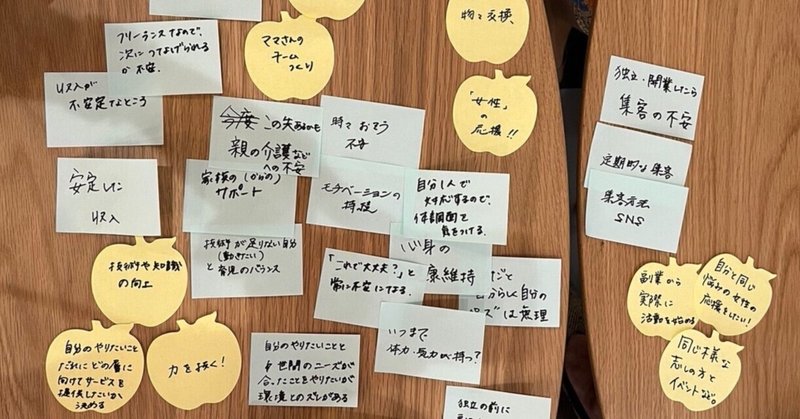 フリーランスなので、
次につなげられる
か不安.
収入が
不安定なところ
安定した
収入
ママさんの
チーム
づくり
物々交換
「女性」
の
応援!!
この先あるかも
親の介護など
への不安
家族の
サポート
時々おそう
不安
モチベーションの
持続
自分1人で
対応するので、
体調面で
気をつける.
技術が足りない自分
(動きたい)
と育児のバランス
「これで大丈夫?」と
常に不安になる.
心身の
康維持
だと
自分らしく自分の
ズは無理
いつまで
体力・気力が持つ?
技術や知識
の向上
自分のやりたいこと
だれにどの層に
向けてサービスを
提供したいか
決める
力を抜く!
自分のやりたいことと
世間のニーズが
合ったことをやりたいが
環境とのズレがある
独立の前に
独立・開業したら
集客の不安
定期的な集客
集客方法
SNS
副業から
実際に
活動を始める
自分と同じ
悩みの女性の
応援をしたい!
同じ様な
志しの方と
イベントなど。